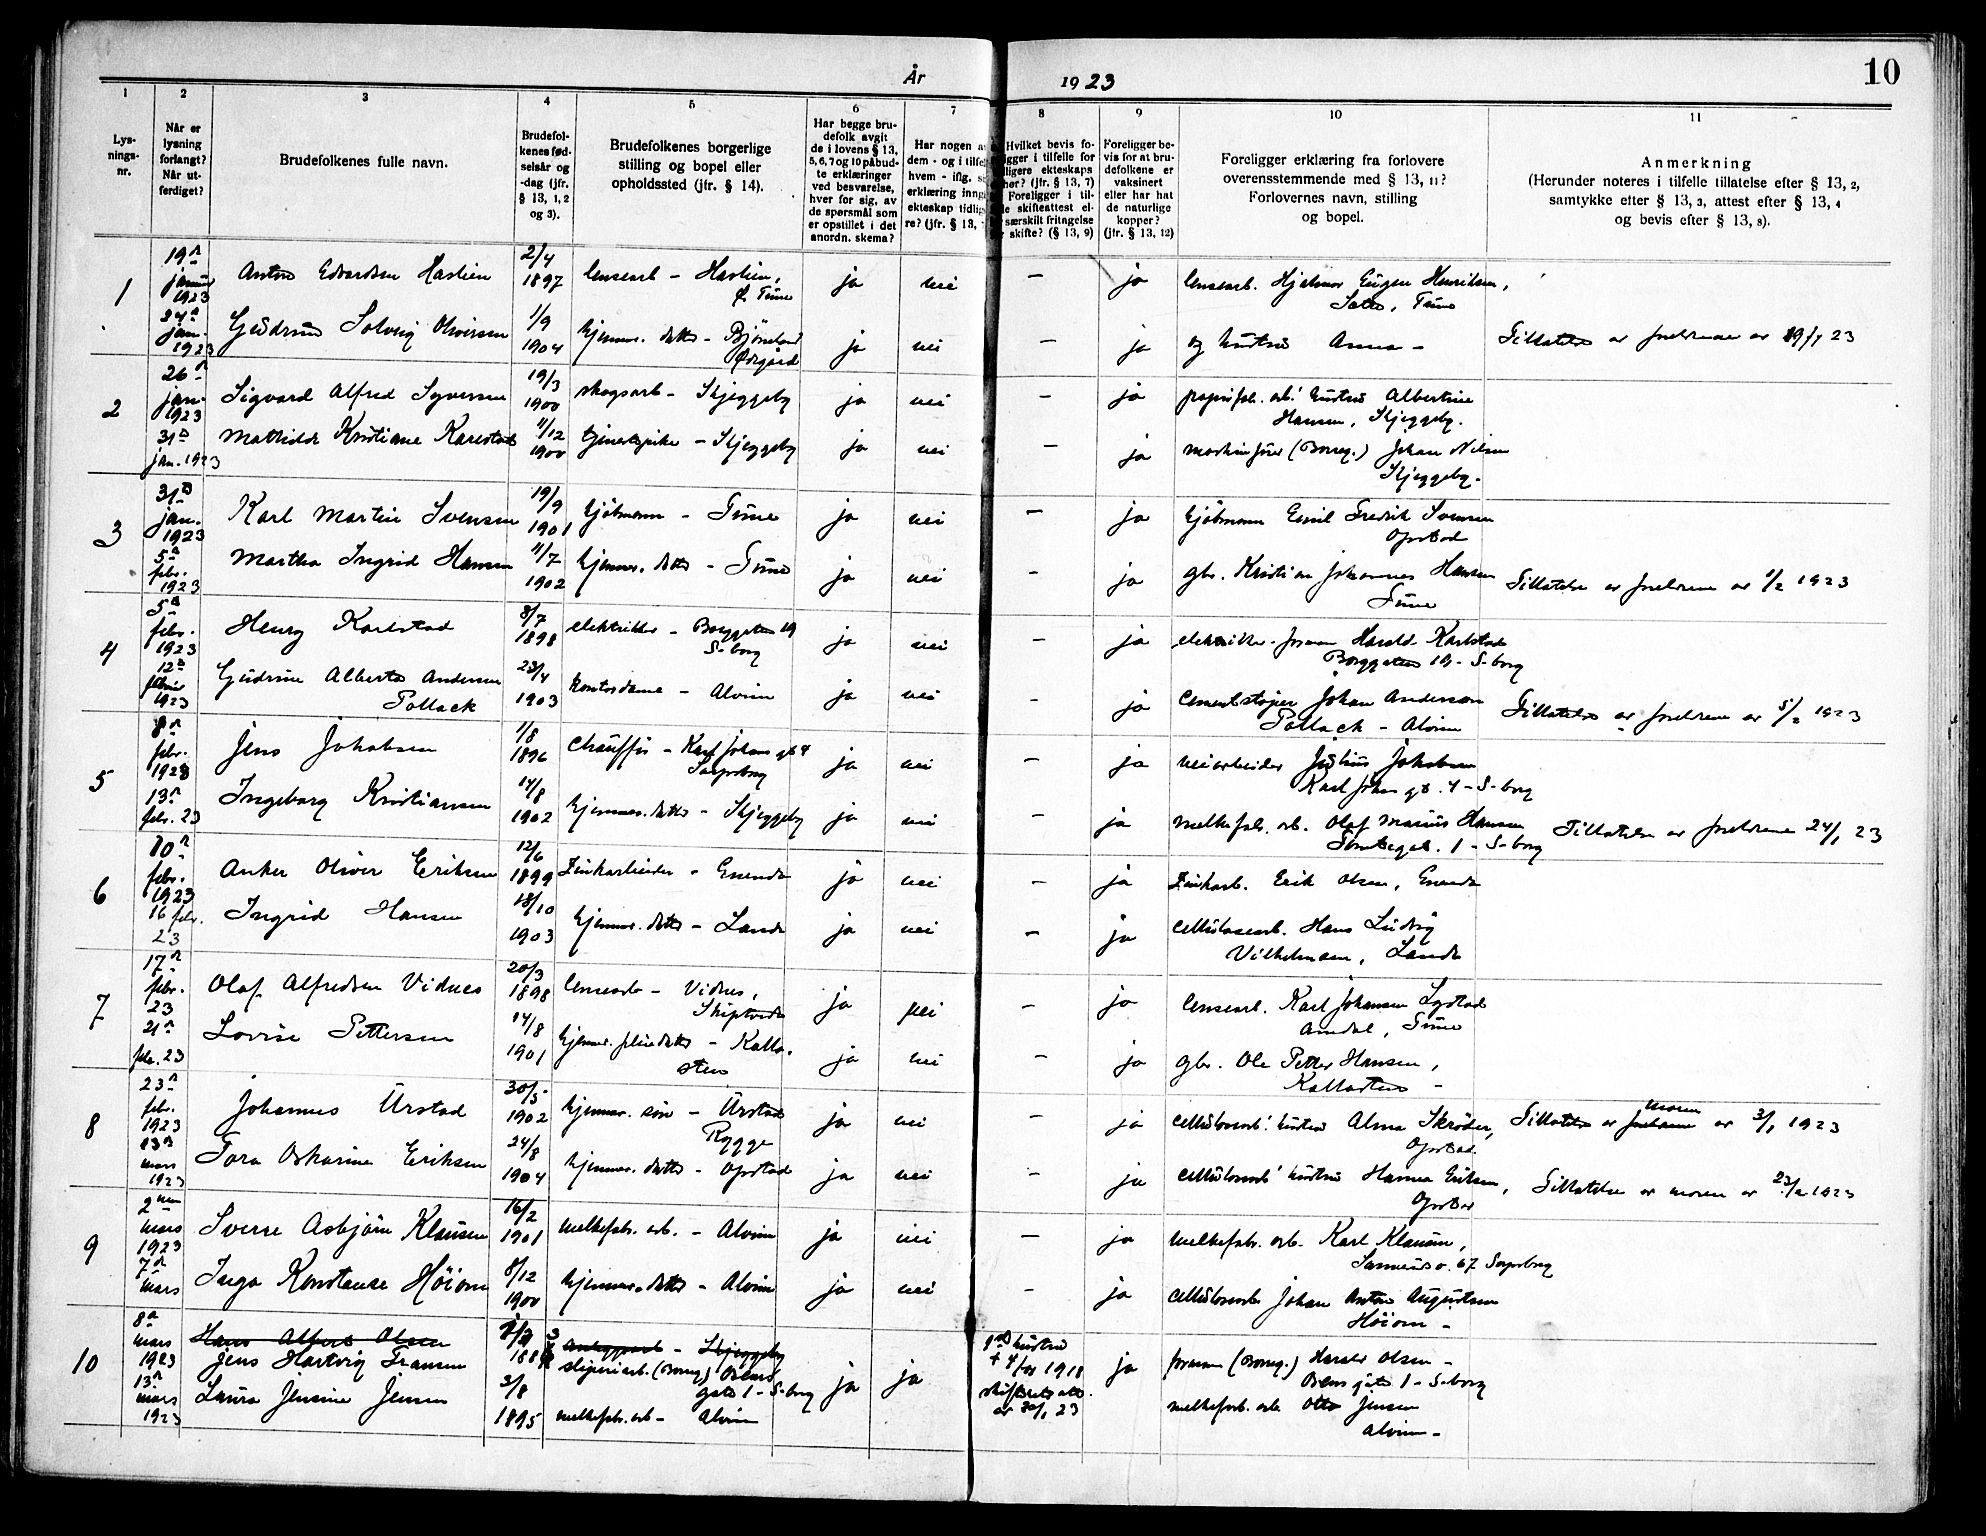 År 1923
10
1
2
3
4
5
6
7
8
9
10
11
Lys-
nings-
nr.
Når er
lysning
forlangt?
Når ut-
ferdiget?
Brudefolkenes fulle navn.
Brudefol-
kenes fød-
selsår og
-dag (jfr.
§ 13, 1, 2
og 3).
Brudefolkenes borgerlige
stilling og bopel eller
opholdssted (jfr. § 14).
Har begge bru-
defolk avgit
de i lovens § 13,
5, 6, 7 og 10 påbud-
te erklæringer
ved besvarelse,
hver for sig, av
de spørsmål som
er opstillet i det
anordn. skema?
Har nogen a
dem - og i tilfel
hvem - iflg. s
erklæring inng
ekteskap tidlig
re? (jfr. § 13,
Hvilket bevis fo-
igger i tilfelle for
ligere ekteskaps
her? (jfr. § 13, 7)
Foreligger i til-
le skifteattest el-
særskilt fritagelse
skifte? (§ 13, 9)
Foreligger be-
vis for at bru-
defolkene er
vaksinert
eller har hat
de naturlige
kopper?
(jfr. § 13, 12)
Foreligger erklæring fra forlovere
overensstemmende med § 13, 11?
Forlovernes navn, stilling
og bopel.
Anmerkning
(Herunder noteres i tilfelle tillatelse efter § 13, 2,
samtykke efter § 13, 3, attest efter § 13, 4
og bevis efter § 13, 8).
1
19n januar 1923
Anton Edvardsen Haslien
2/4 1897
lensearb - Haslien,
Ø. Tune
ja nei — ja
lensearb. Hjalmar Eugen Henriksen,
Tune
24n jan. 1923
Gudrun Solveig Olversen
1/9 1904
hjemmev. datter - Bjørneland
ja nei ja
og hustru Anna -
Tillatelse av foreldrene av 19/1 23
2
26n jan. 1923
Sigvard Alfred Syversen
19/3 1900
skogsarb - Skjeggeby
ja nei — ja
papirfab. arb.' hustru Albertine
Hansen, Skjeggeby.
31n jan. 1923
Mathilde Kristiane Karlstad
11/12 1900
tjenestepike - Skjeggeby
ja nei — ja
maskinfører (Borreg.) Johan Nilsen
Skjeggeby.
3
31n jan. 1923
Karl Martin Svensen
19/9 1901
kjøbmann - Tune
ja nei — ja
kjøbmann Emil Fredrik Svensen
Opstad
5n febr. 1923
Martha Ingrid Hansen
11/7 1902
hjemmev. datter - Tune
ja nei — ja
gbr. Kristian Johannes Hansen
Tune
Tillatelse av foreldrene av 1/2 1923
4
5n febr. 1923
Henry Karlstad
8/7 1898
elektriker - Borggaten 19
S-borg
ja nei — ja
elektriker-forman Harald Karlstad
Borggaten 19 - S-borg
12n februar 1923
Gudrun Alberta Andersen
Pollack
23/4 1903
kontordame - Alvim
ja nei - ja
Cementstøper Johan Anderson
Pollack - Alvim
Tillatelse av foreldrene av 5/2 1923
5
8n febr. 1923
Jens Jakobsen
1/8 1896
Chauffør - Karl Johans gt 4
Sarpsborg
ja nei — ja
veiarbeider Julius Jakobsen
Karl Johans gt. 4 - S-borg
13n febr. 23
Ingeborg Kristiansen
14/8 1902
hjemmev. datter - Skjeggeby
ja nei — ja
melkefab. arb. Olaf Marius Hansen
1 - S-borg
Tillatelse av foreldrene 24/1 23
6
10n febr. 1923
Anker Oliver Eriksen
12/6 1899
Zinkarbeider - Grenda
ja nei — ja
Zinkarb. Erik Olsen, Grenda
16 febr. 23
Ingrid Hansen
18/10 1903
hjemmev. datter - Lande
ja nei — ja
cellulosearb. Hans Ludvig
Vilhelmsen, Lande
7
17n febr. 23
Olaf Alfredsen Vidnes
20/3 1898
lensearb - Vidnes,
Skiptvedt
ja nei — ja
lensearb. Karl Johansen Lystad
Tune
21n febr. 23
Lovise Pettersen
14/8 1901
hjemmev. pleiedatter - Kalla-
sten
ja nei — ja
gbr. Ole Petter Hansen,
Kallasten -
8
23n febr. 1923
Johannes Urstad
30/5 1902
hjemmev. søn - Urstad
Rygge
ja nei — ja
cellulosearb.' hustru Alma Skrøder,
Opstad.
moren
Tillatelse av foreldrene av 3/1 1923
13n mars 1923
Tora Oskarine Eriksen
24/8 1904
hjemmev. datter - Opstad
ja nei — ja
cellulosearb' hustru Hanna Eriksen,
Opstad
Tillatelse av moren av 23/2 1923
9
2nen mars 1923
Sverre Asbjørn Klausen
16/2 1901
melkefabr. arb. - Alvim
ja nei — ja
melkefabr. arb. Karl Klausen,
67 Sarpsborg
7n mars
Inga Konstanse Høiom
8/12 1900
hjemmev. datter - Alvim
ja nei - ja
cellulosearb Johan Anton Augustsen
Høiom -
10
8n mars 1923
Hans Alfred Olsen
Jens Hartvig Fransen
anleggsarb - Skjeggeby
sliperiarb. (Borreg)
gate 1 - S-borg
ja ja
1ste hustru
+ 4/10 1918
skifteretsatt.
av 30/1 23
ja
forman (Borreg.) Harald Olsen -
gate 1 - S-borg
13n mars 1923
Laura Jensine Jensen
3/8 1895
melkefab. arb - Alvim
melkefab. arb. Otto Jensen
Alvim -